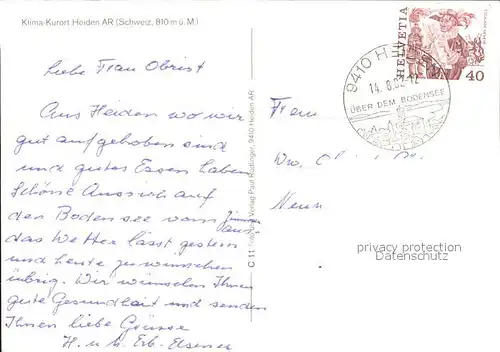 Klima-Kurort Heiden AR (Schweiz, 810 m ü. M.)
Liebe Frau Obrist
Aus Heiden wo wir
gut aufgehoben sind
und gutes Essen haben
Schöne Aussich auf
den Bodensee vom Zimmer
aus
das Wetter lässt gestern
und heute zu wünschen
übrig. Wir wünschen Ihnen
gute Gesundheit und senden
Ihnen liebe Grüsse
H. u. M. Erb-Elsener
Verlag Paul Rüdlinger, 9410 Heiden AR
C 11
HELVETIA
40
9410
14. 8. 82-12
ÜBER DEM BODENSEE
Frau
Wwe.
privacy protection
Datenschutz